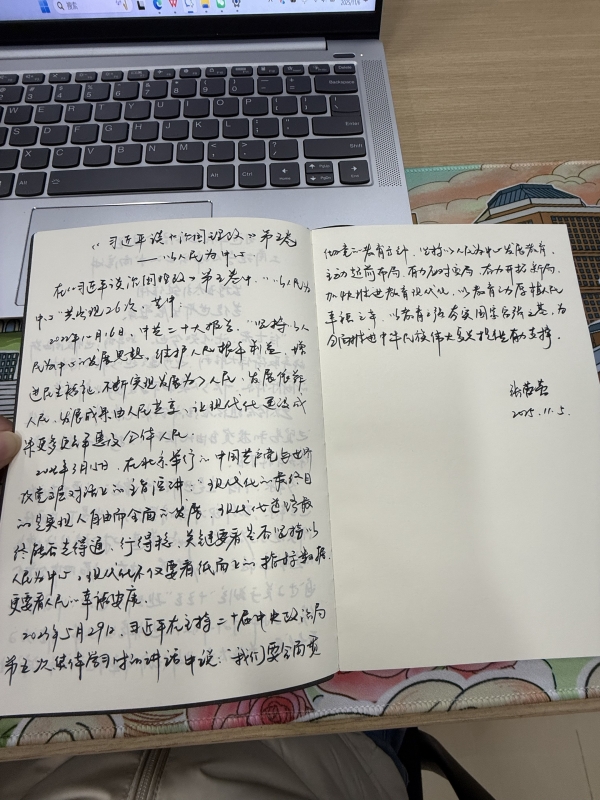 搜索
2025/11/6
《习近平谈治国理政》第五卷
——“以人民为中心”
在《习近平谈治国理政》第五卷中，“以人民为中
心”共出现26次，其中
2022年10月16日，中共二十大报告：“坚持以人
民为中心的发展思想。维护人民根本利益，增
进民生福祉，不断实现发展为了人民、发展依靠
人民、发展成果由人民共享，让现代化建设成
果更多更公平惠及全体人民
2023年3月15日，在北京举行的中国共产党与世界
政党高层对话会上的主旨讲话：“现代化的最终目
的是实现人自由而全面的发展。现代化道路最
终能否走得通、行得稳，关键要看是否坚持以
人民为中心。现代化不仅要看纸面上的指标数据，
更要看人民的幸福安康。
2023年5月29日，习近平在主持二十届中央政治局
第五次集体学习时的讲话中说：“我们要全面贯
彻党的教育方针，坚持以人民为中心发展教育，
主动超前布局、有力应对变局、奋力开拓新局，
加快推进教育现代化，以教育之力厚植人民
幸福之本，以教育之强夯实国家富强之基，为
全面推进中华民族伟大复兴提供有力支撑。
2025.11.5.